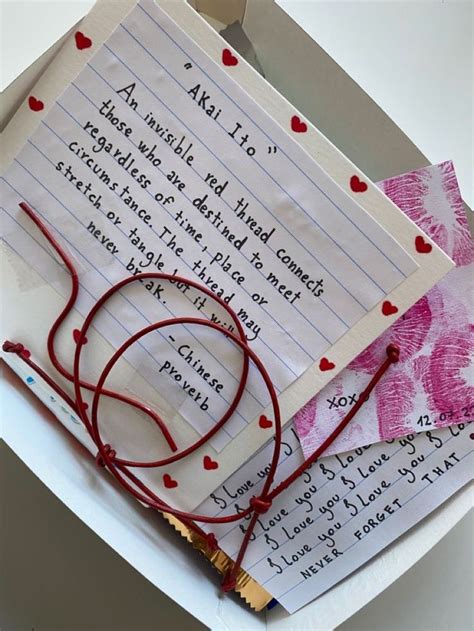 " AKai Ito "
An invisible red thread connects
those who are destined to meet
regardless of time, place or
circumstance. The thread may
stretch or tangle but it will
never break.
- Chinese
proverb
XOXO
12.07
I Love you I Love you I Lo
I Love you I Love you I Love
I Love you I Love you I Love
I Love you I Love you I
I Love you I Love you
NEVER FORGET THAT